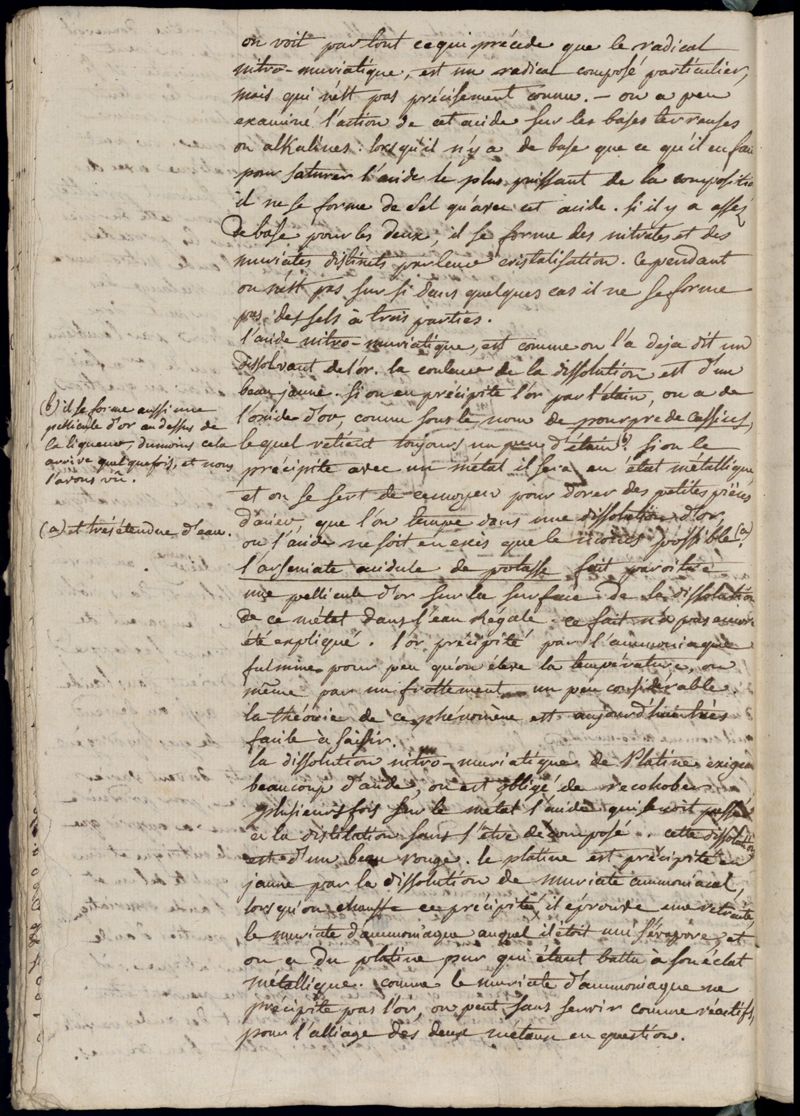 on voit par tout ce qui précède que le radical
nitro-muriatique, est un radical composé particulier,
mais qui n'est pas précisement connu. – on a peu
examiné l'action de cet acide sur les bases terreuses
ou alkalines: lorsqu'il n'y a de base que ce qu'il en fau
pour saturer l'acide le plus puissant de la compositio
il ne se forme de sel qu'avec cet acide. si il y a assés
de base pour les deux, il se forme des nitrates et des
muriates distincts par leur cristalisation. Cependant
on n'est pas sur si dans quelques cas il ne se forme
pas des sels à trois parties.
l'acide nitro-muriatique, est comme on l'a deja dit un
dissolvant de l'or. la couleur de la dissolution est d'un
beau jaune. Si on en précipite l'or par l'étain, on a de
l'oxide d'or, connu sous le nom de pourpre de Cassius,
lequel retient toujours un peu d'étain (b). Si on le
précipite avec un métal il sera en état métallique
et on se sert de ce moyen pour dorer des petites pièces
d'acier, que l'on trempe dans une dissolution d'or,
ou l'acide ne soit en excès que le moins possible (a).
l'arseniate acidule de potasse fait paroitre
une pellicule d'or sur la surface de la dissolution
de ce métal dans l'eau Régale. ce fait n'a pas encore
été expliqué. l'or précipité par l'ammoniaque
fulmine pour peu qu'on éleve la température, ou
même par un frottement un peu considérable.
la théorie de ce phénomène est aujourd'hui très
facile à saisir.
la dissolution nitro-muriatique de Platine exige
beaucoup d'acide, on est obligé de recohober
plusieurs fois sur le métal l'acide qui seroit passé
à la distilation sans l'être décomposé. cette dissolution
est d'un beau rouge. le platine est précipité en
jaune par la dissolution de muriate ammoniacal,
lorsqu'on chauffe ce précipité, il éprouve une retraite,
le muriate d'ammoniaque auquel il étoit uni s'évapore, et
on a du platine pur qui étant battu a son éclat
métallique. comme le muriate d'ammoniaque ne
précipite pas l'or, on peut s'en servir comme réactifs,
pour l'alliage des deux métaux en question.
(b) il se forme aussi une
pellicule d'or au dessus de
la liqueur, du moins cela
arrive quelquefois, et nous
l'avons vu.
(a) et très étendue d'eau.